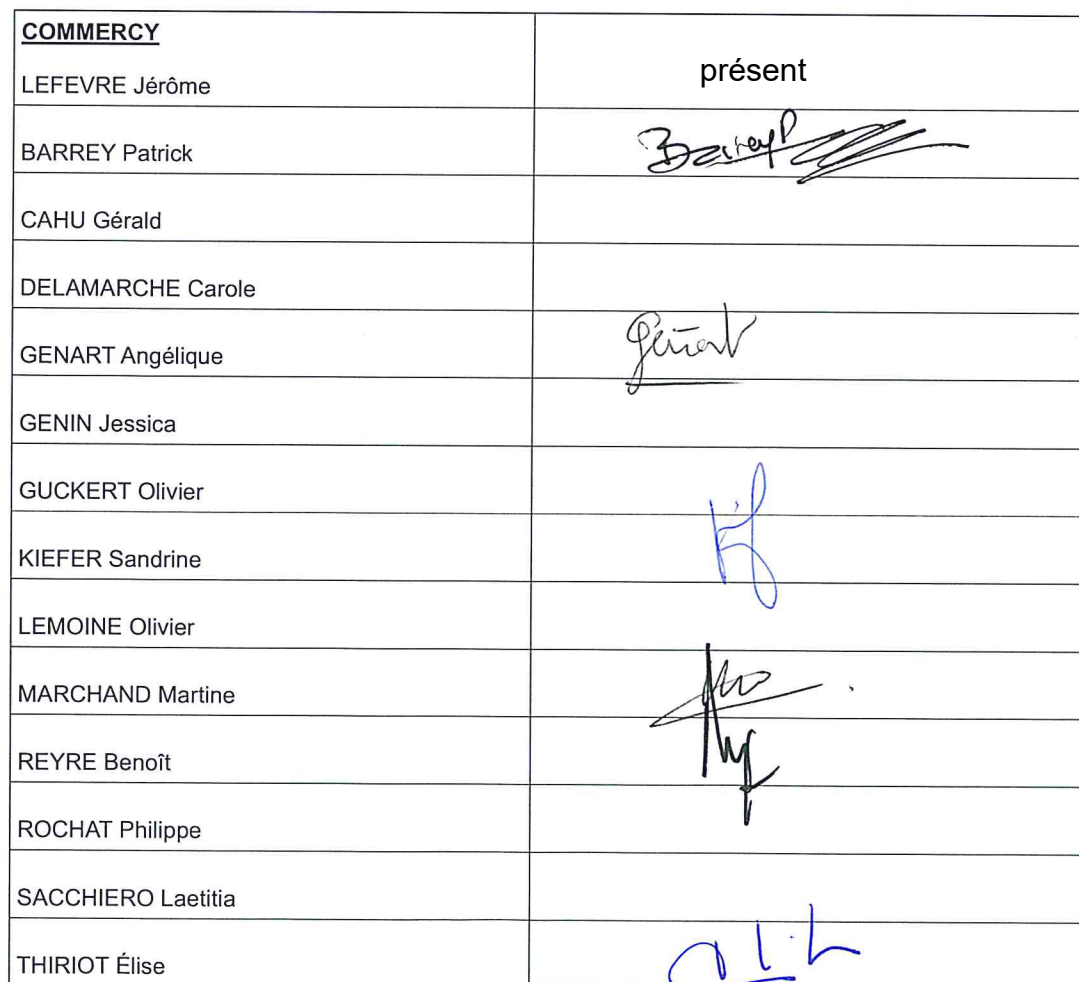 COMMERCY
LEFEVRE Jérôme
présent
BARREY Patrick
Barrey P
CAHU Gérald
DELAMARCHE Carole
GENART Angélique
Genart
GENIN Jessica
GUCKERT Olivier
KIEFER Sandrine
LEMOINE Olivier
MARCHAND Martine
REYRE Benoît
ROCHAT Philippe
SACCHIERO Laetitia
THIRIOT Élise